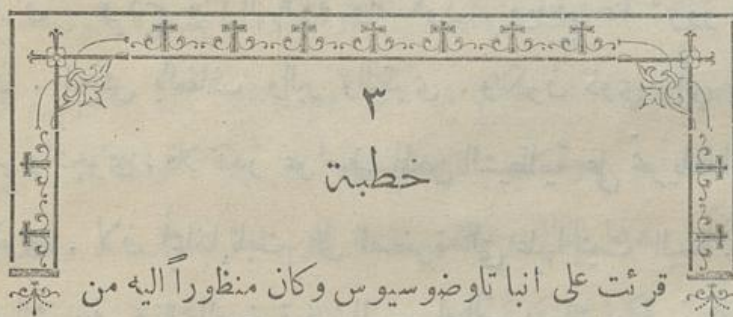 ٣
خطبة
قرئت على انبا تاوضوسيوس وكان منظوراً اليه من